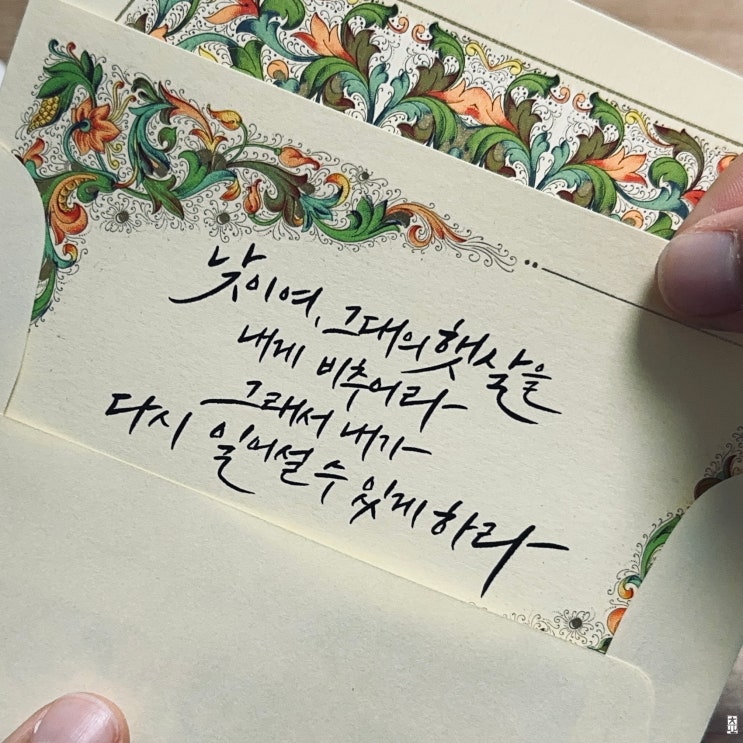 낮이여, 그대의 햇살을
내게 비추어라
그래서 내가
다시 일어설 수 있게 하라